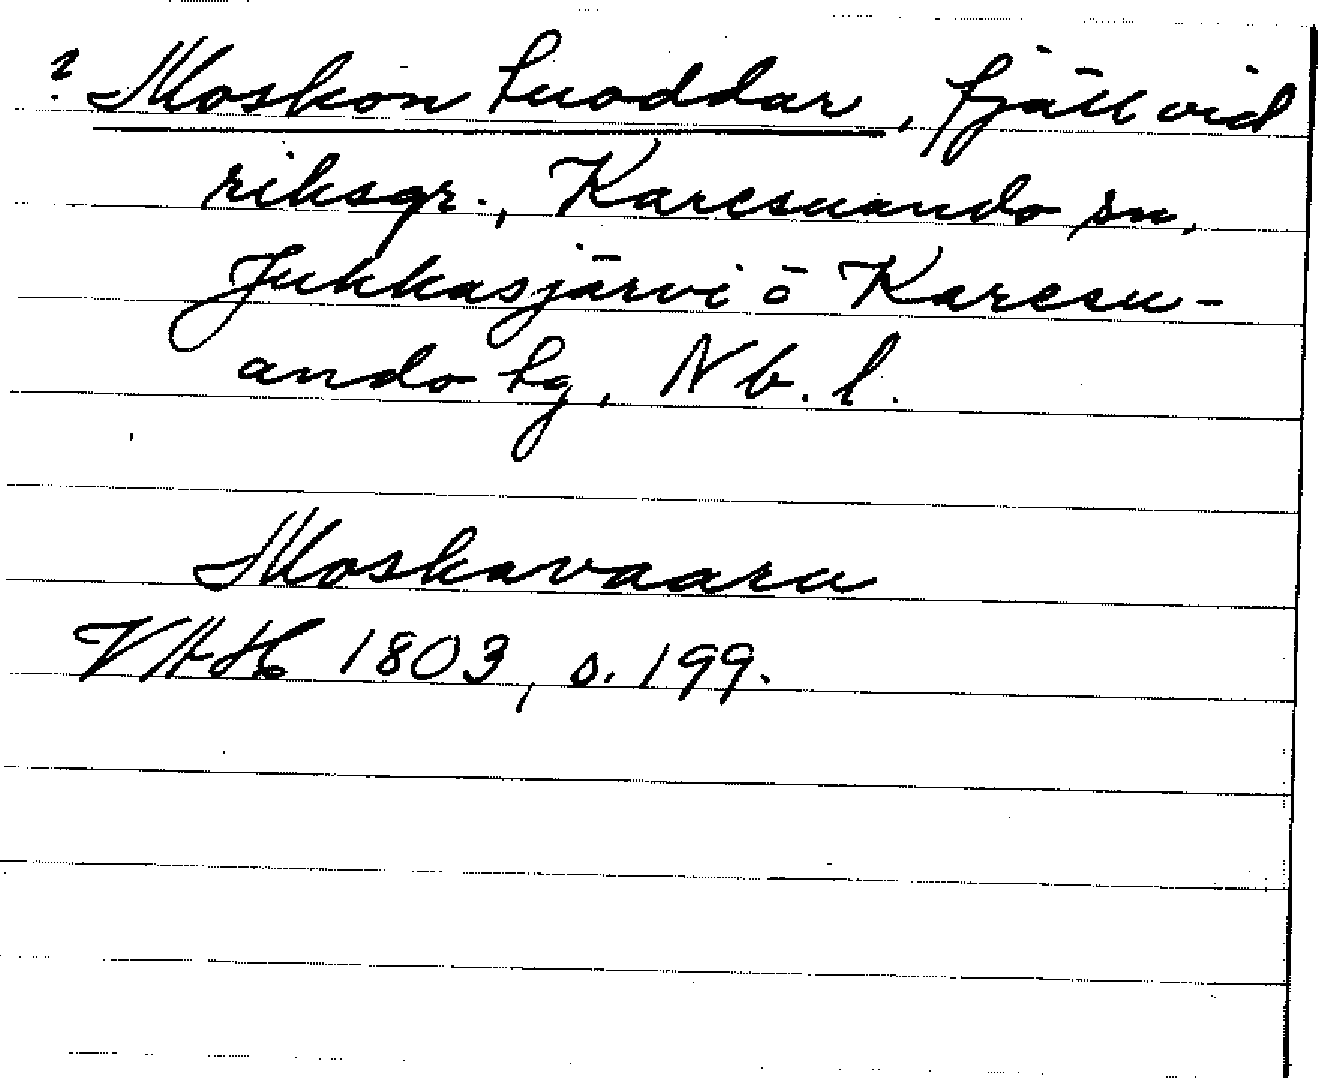 ? Moskon tuoddar, fjäll vid
riksgr., Karesuando sn,
Jukkasjärvi o Karesu-
ando tg, Nb. l.
Moskavaara
VAH 1803, s. 199.